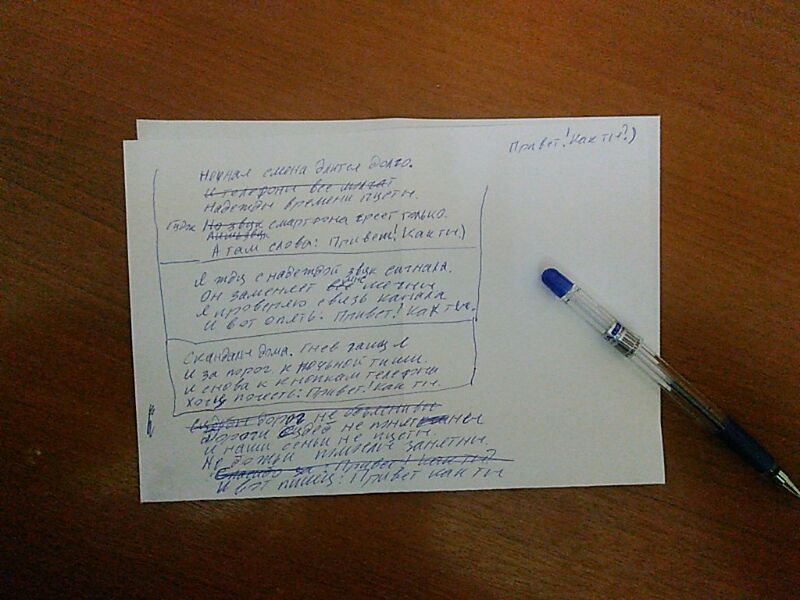 Привет! Как ты?)
Ночная смена длится долго.
И телефоны все молчат
Надежды времени пусты.
Гудок Но звук смартфона греет только.
Лишь звук
А там слова: Привет! Как ты)
Я жду с надеждой звук сигнала.
Он заменяет все мне мечты
Я проверяю связь канала
И вот опять: Привет! Как ты.
Скандалы дома. Гнев гашу я
И за порог к ночной тиши.
И снова к кнопкам телефона
Хочу прочесть: Привет! Как ты.
дорог не
Дороги судеб не
и наши семьи не пусты
Не божьи заняты.
Спасибо за: Привет! Как ты?
И вот пишу: Привет как ты